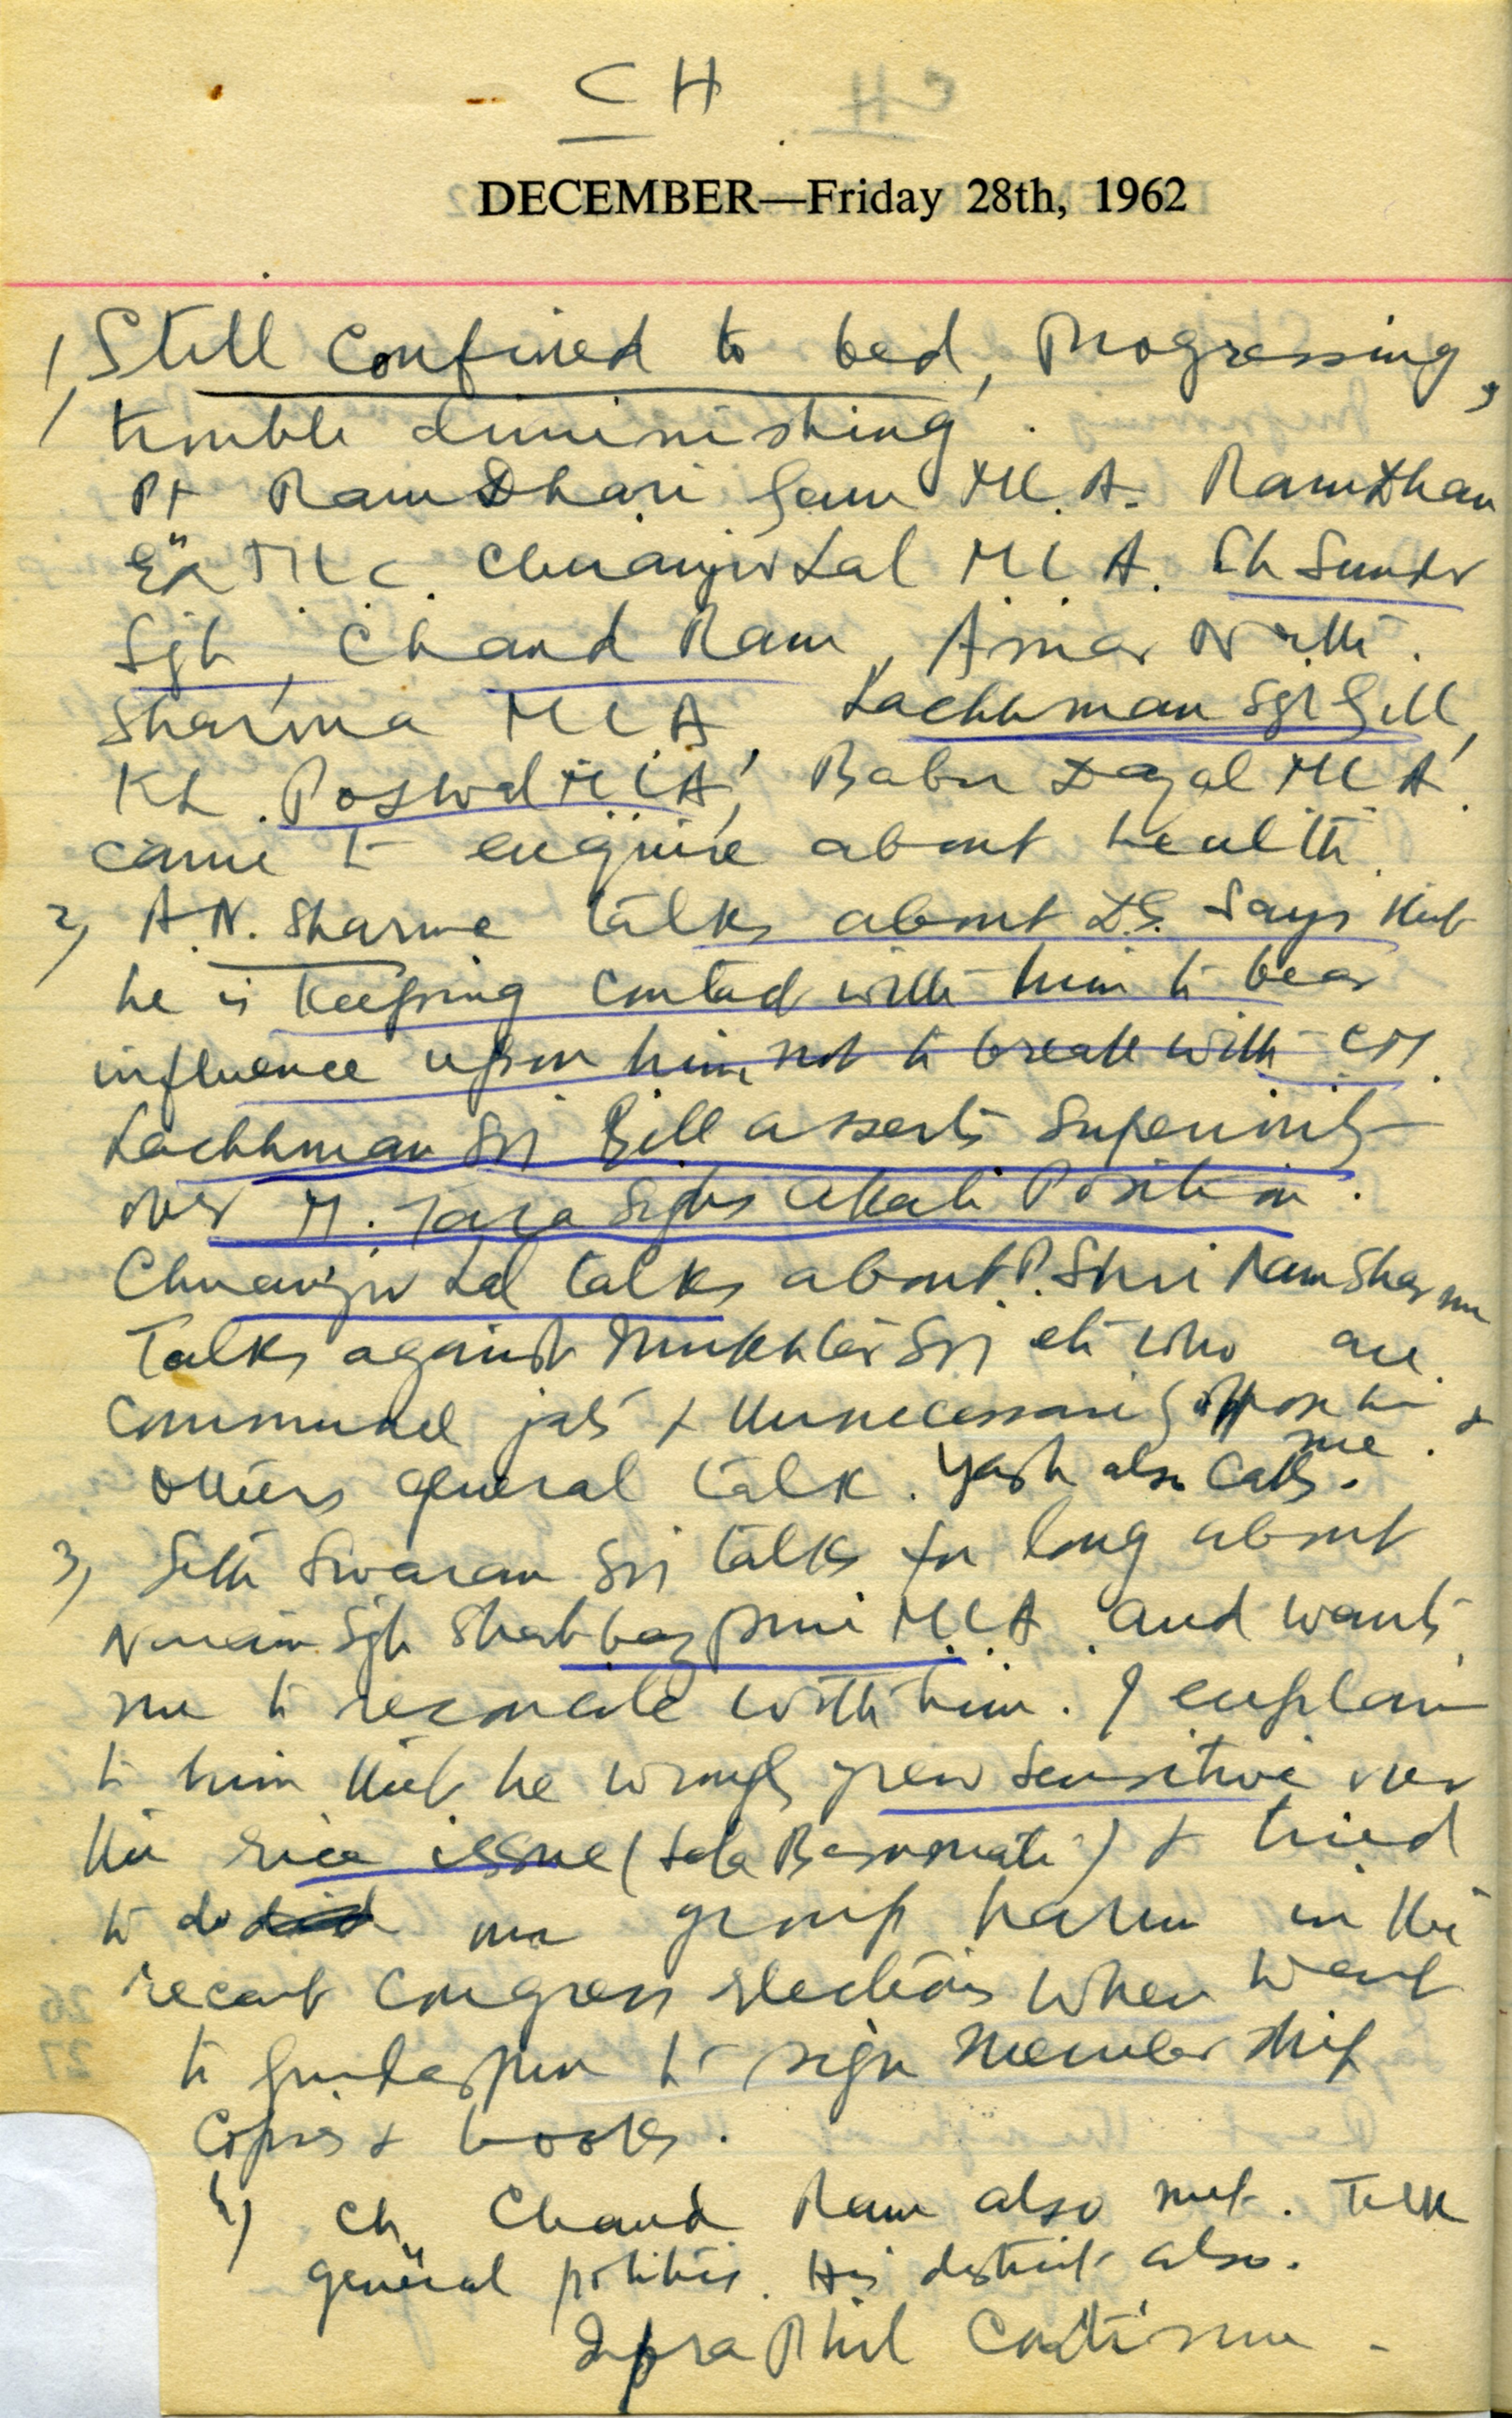 CH
DECEMBER—Friday 28th, 1962
1, Still confined to bed, Progressing,
trouble diminishing.
Pt Ram Dhari Gaur MLA. Ram Dhan
Ex MLC. Chiranjiv Lal MLA. Ch Sunder
Sgh, Chand Ram, Amar Nath.
Sharma MLA Lachhman Sgh Gill,
Kh. Poswal MLA, Babu Dayal MLA.
came to enquire about health.
2, A.N. Sharma talks about D.S. Says that
he is keeping contact with him to bear
influence upon him, not to break with CM.
Lachhman Sgh Gill asserts Superiority
over M. Tara Sighs Akali Position.
Chiranjiv Lal talks about P. Shri Ram Sharma
Talks against Mukhtar Sgh etc who are
communal jats & unnecessarily oppose me. &
others general talk. Yash also calls.
3, Seth Swaran Sgh talks for long about
Narain Sgh Shahbazpuri MLA. and wants
me to reconcile with him. I explain
to him that he wrongly grew sensitive over
the rice issue (Lala Basmati) & tried
to do our group harm in the
recent Congress elections when went
to Gurdaspur to sign membership
copies & books.
4) Ch Chand Ram also met. Talk
general politics. His district also.
Infra Phil Continue -